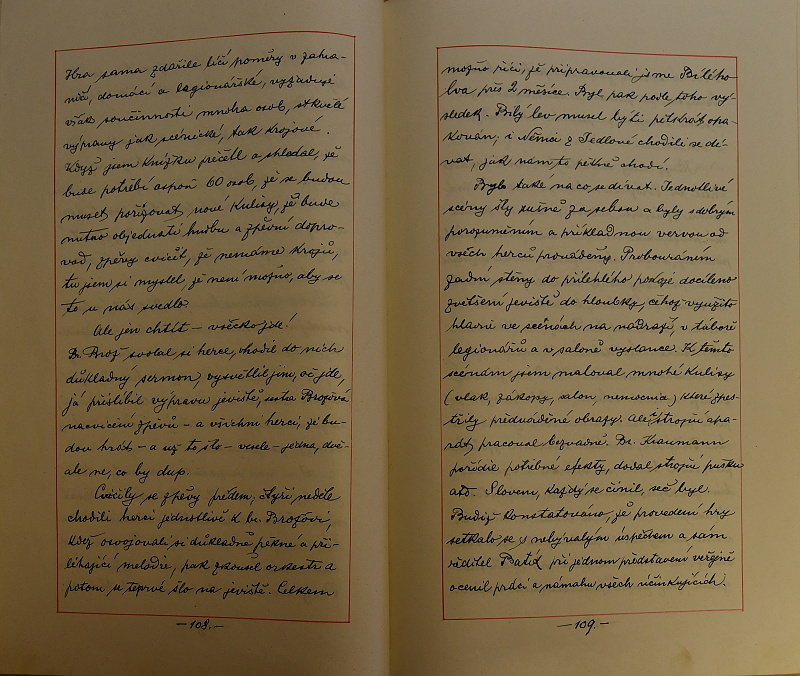 Hra sama zdařile líčí poměry v zahra-
ničí, domácí a legionářské, vyžaduje
však součinnosti mnoha osob, skvělé
výpravy jak scénické, tak krojové.
Když jsem knížku přečetl a shledal, že
bude potřebí aspoň 60 osob, že se budou
muset pořizovat nové kulisy, že bude
nutno objednati hudbu a zpěvní dopro-
vod, zpěvy cvičit, že nemáme krojů,
tu jsem si myslel, že není možno, aby se
to u nás svedlo.
Ale jen chtít - všecko jde!
Br. Brož svolal si herce, vhodil do nich
důkladný sermon, vysvětlil jim, oč jde,
já přislíbil výpravu jeviště, sestra Brožová
nacvičení zpěvů - a všichni herci, že bu-
dou hrát - a už to šlo - vesele - jedna, dvě -
ale ne, co by dup.
Cvičily se zpěvy předem, čtyři neděle
chodili herci jednotlivě k br. Brožovi,
když osvojovali si důkladně pěkné a při-
léhající melodie, pak zkoušel orkestr a
potom se teprve šlo na jeviště. Celkem
-108.-
možno říci, že připravovali jsme Bílého
lva přes 2 měsíce. Byl pak podle toho vý-
sledek. Bílý lev musel býti pětkrát opa-
kován; i Němci z Sedlové chodili se dí-
vat, jak nám to pěkně chodí.
Bylo také na co se dívat. Jednotlivé
scény šly rušně za sebou a byly s dobrým
porozuměním a příkladnou vervou od
všech herců prováděny. Probouráním
zadní stěny do přilehlého pokoje docíleno
zvětšení jeviště do hloubky, čehož využito
hlavně ve scénách na nádraží, v táboře
legionářů a v saloně vyslance. K těmto
scénám jsem maloval mnohé kulisy
(vlak, zákopy, salon, nemocnici) které zpes-
třily předváděné obrazy. Ale i strojní apa-
rát pracoval bezvadně. Br. Kraumann
pořídil potřebné efekty, dodal strojní pušku
atd. Slovem, každý se činil, seč byl.
Budiž konstatováno, že provedení hry
setkalo se s nebývalým úspěchem a sám
ředitel Baťa při jednom představení veřejně
ocenil práci a námahu všech účinkujících.
-109.-